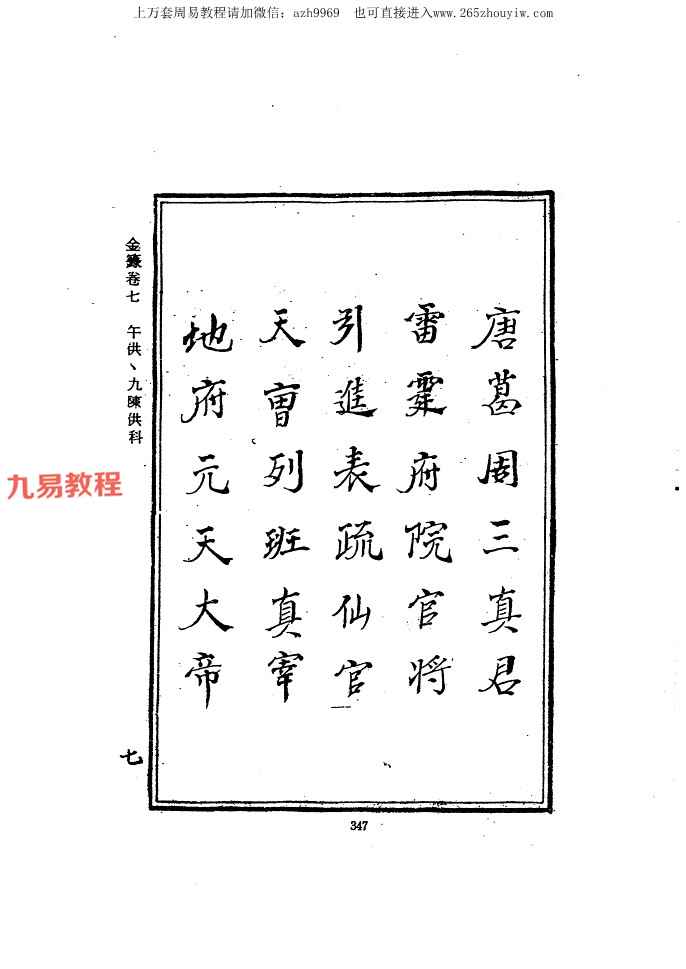 上万套周易教程请加微信：azh9969 也可直接进入www.265zhouyiw.com
唐葛周三真君
雷霆府院官将
引進表疏仙官
天曹列班真宰
地府元天大帝
金籙卷七 午供、九陳供科
七
九易教程
347